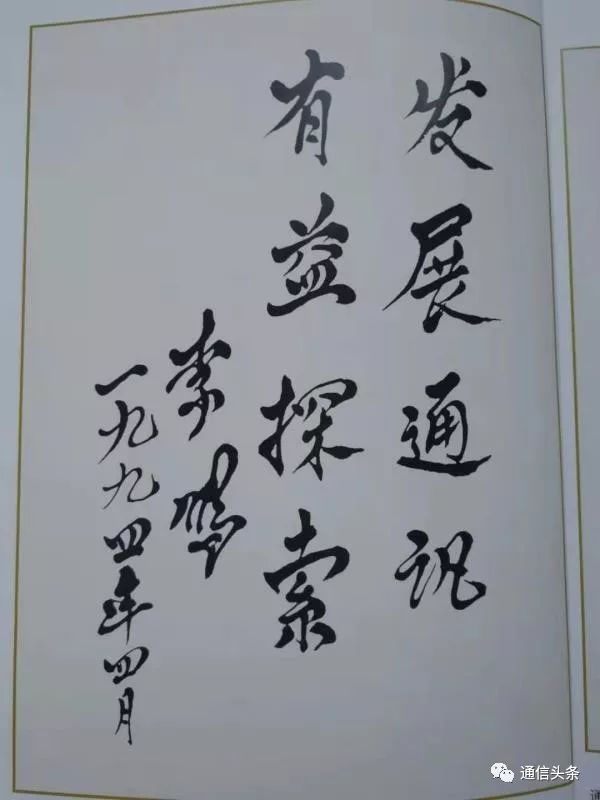 发展通讯
有益探索
李鹏
一九九四年四月
通信头条